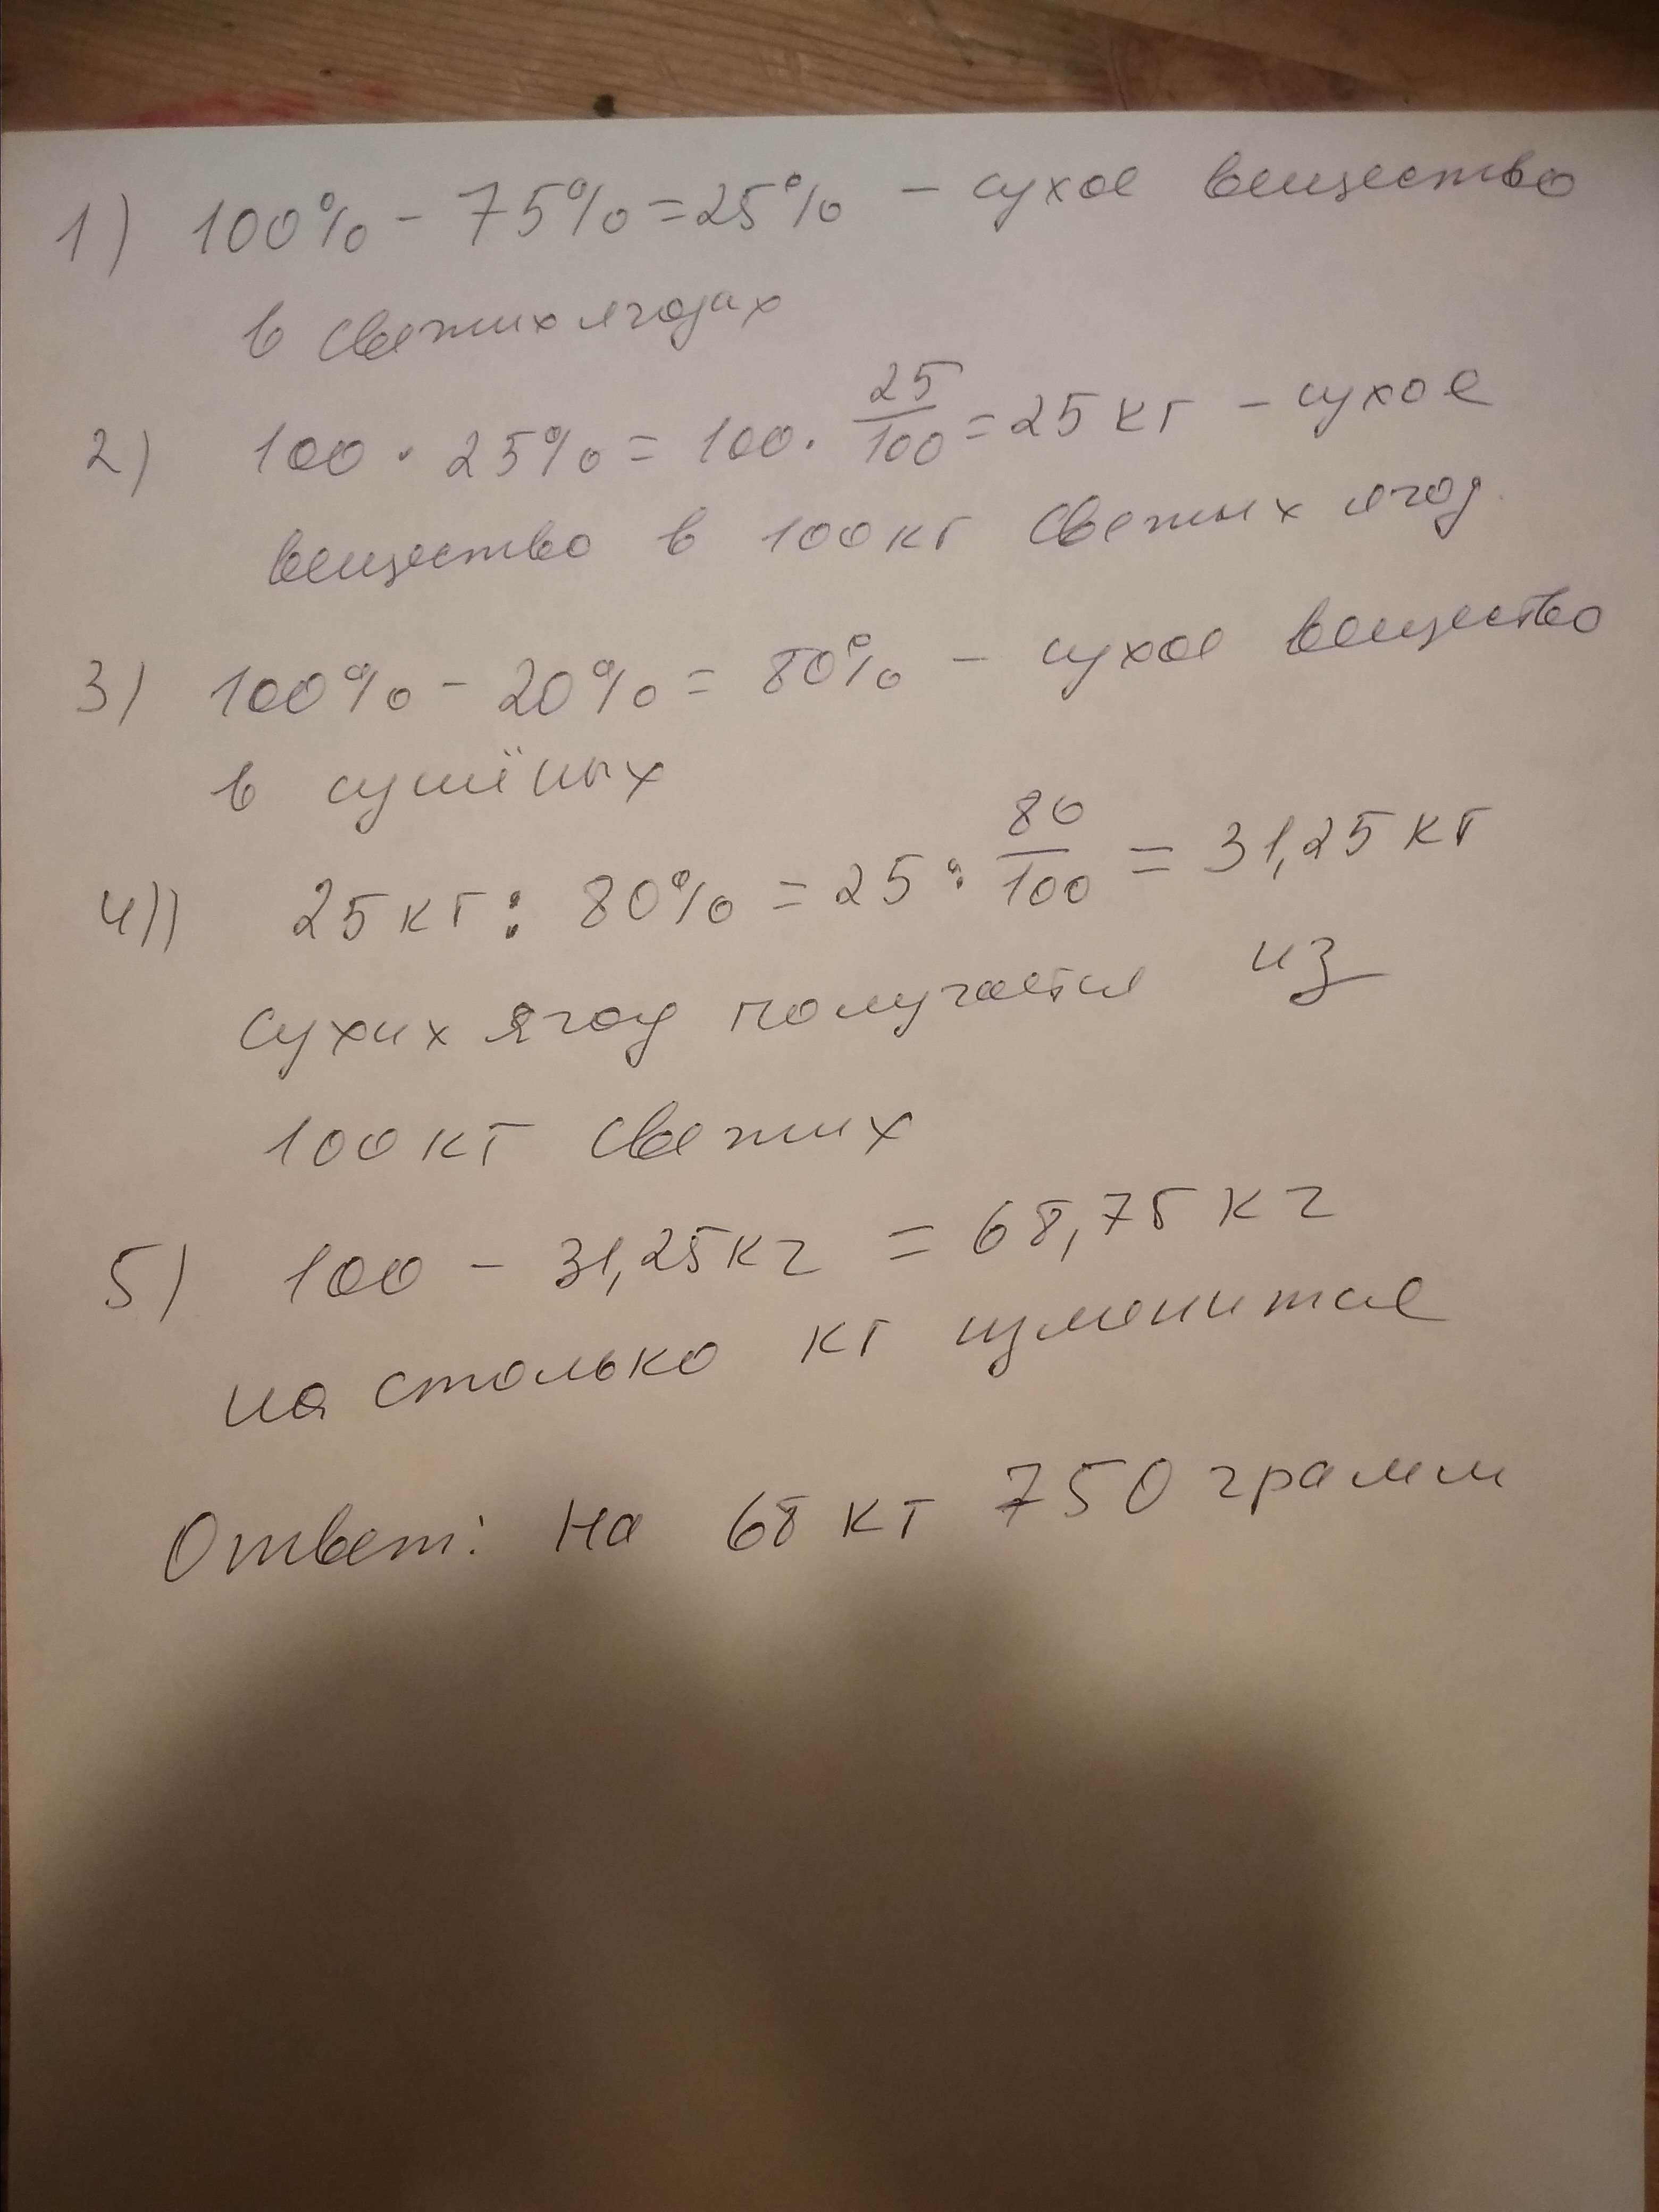 1) 100% - 75% = 25% - сухое вещество
в свежих ягодах
2) 100 · 25% = 100 · 25/100 = 25 кг - сухое
вещество в 100 кг свежих ягод.
3) 100% - 20% = 80% - сухое вещество
в сушёных
4)) 25 кг : 80% = 25 : 80/100 = 31,25 кг
сухих ягод получается из
100 кг свежих
5) 100 - 31,25 кг = 68,75 кг
на столько кг изменится
Ответ: На 68 кг 750 грамм